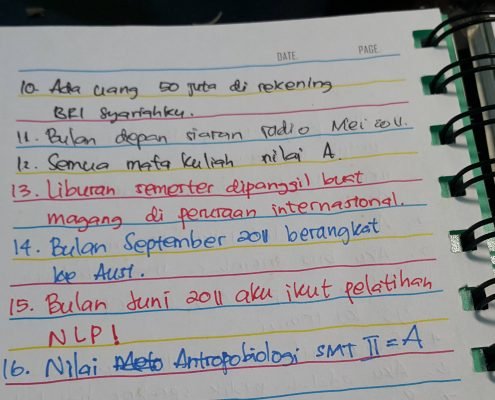 DATE PAGE
10. Ada uang 50 juta di rekening
BRI Syariahku.
11. Bulan depan siaran radio Mei 2011.
12. Semua mata kuliah nilai A.
13. Liburan semester dipanggil buat
magang di perusaan internasional.
14. Bulan September 2011 berangkat
ke Aust.
15. Bulan Juni 2011 aku ikut pelatihan
NLP!
16. Nilai Antropobiologi SMT II = A